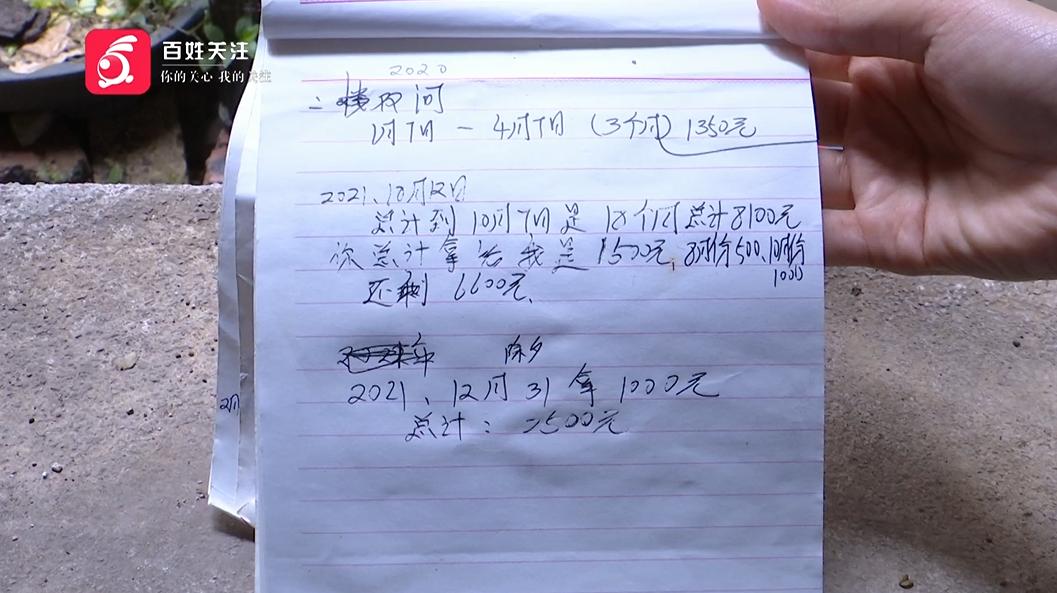 百姓关注
你的关心 我的关注
2020
二楼双间
1月7日－4月7日（3个月）1350元
2021、10月12日
总计到10月7日是18个月总计8100元
你总计拿给我是1500元，8月份500、10月份
1000
还剩6600元、
除夕
2021、12月31拿1000元
总计：2500元
2月